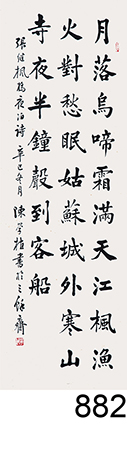 月落烏啼霜滿天江楓漁
火對愁眠姑蘇城外寒山
寺夜半鐘聲到客船
張繼楓橋夜泊詩 辛巳冬月 陳學植書於三餘齋
882